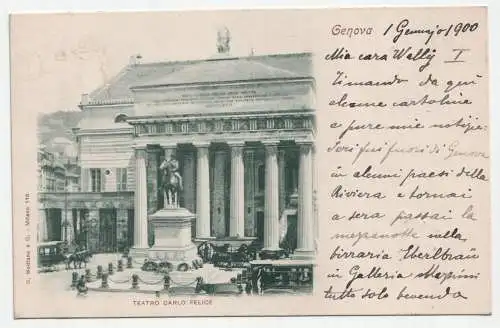 Genova
1 Gennajo 1900
I
Mia cara Wally
Timando da quì
alcune cartoline
e pure mie notizie.
Ieri fui fuori di Genova
in alcuni paesi della
Riviera e tornai
a sera passai la
mezzanotte nella
birraria Eberlbrau
in Galleria Mazzini
tutto solo bevendo
TEATRO CARLO FELICE